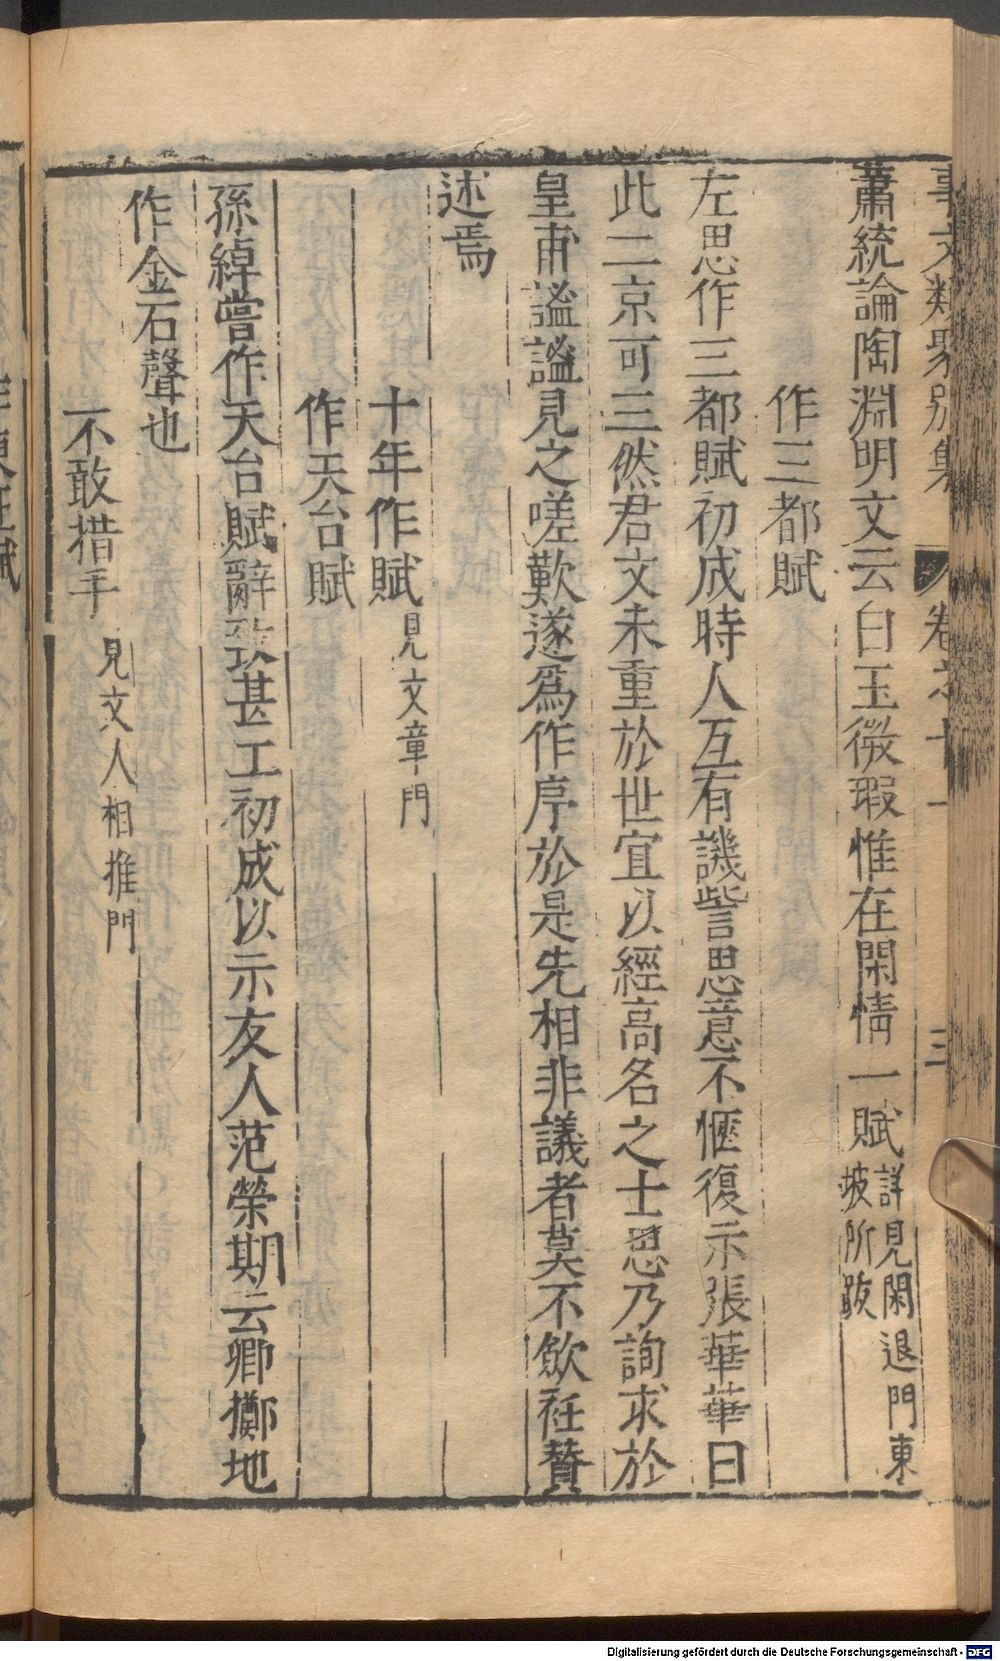 事文類聚別集　卷之十一　三
蕭統論陶淵明文云白玉微瑕惟在閑情一賦詳見閑退門東
坡所跋
作三都賦
左思作三都賦初成時人互有譏訾思意不愜復示張華華曰
此二京可三然君文未重於世宜以經高名之士思乃詢求於
皇甫謐謐見之嗟歎遂爲作序於是先相非議者莫不斂衽贊
述焉
十年作賦見文章門
作天台賦
孫綽嘗作天台賦辭致甚工初成以示友人范榮期云卿擲地
作金石聲也
不敢措手見文人相推門
Digitalisierung gefördert durch die Deutsche Forschungsgemeinschaft - DFG